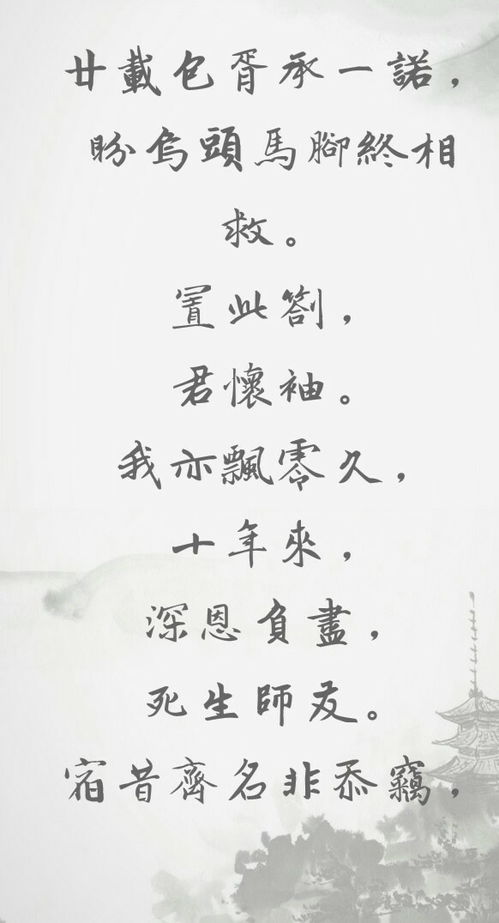 廿載包胥承一諾，
盼烏頭馬腳終相
救。
置此劄，
君懷袖。
我亦飄零久，
十年來，
深恩負盡，
死生師友。
宿昔齊名非忝竊，